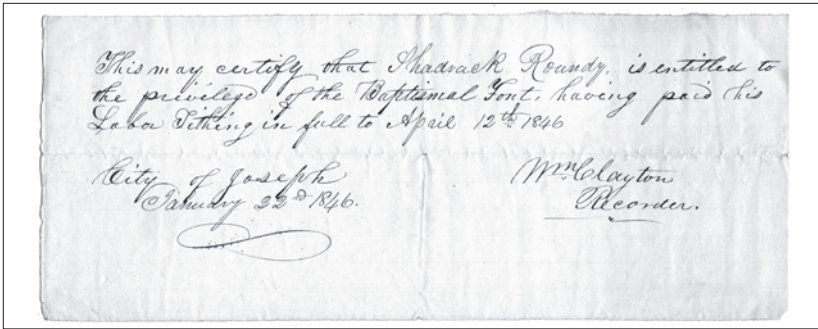 This may certify that Shadrack Roundy, is entitled to
the privilege of the Baptismal Font, having paid his
Labor Tithing in full to April 12th 1846
City of Joseph
January 22nd 1846.
Wm. Clayton
Recorder.